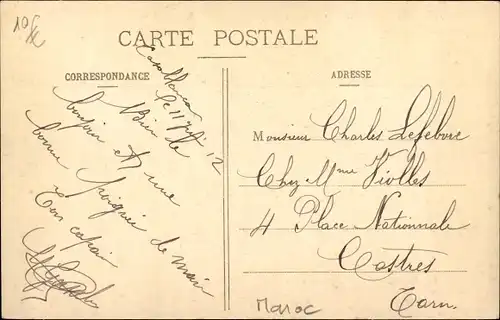 CARTE POSTALE
CORRESPONDANCE
ADRESSE
Casablanca
Le 11
12
Bien le
bonjour et une
bonne poignée de main
Ton copain
Monsieur Charles Lefebvre
Chez Mme Violles
4 Place Nationale
Castres
Tarn
Maroc